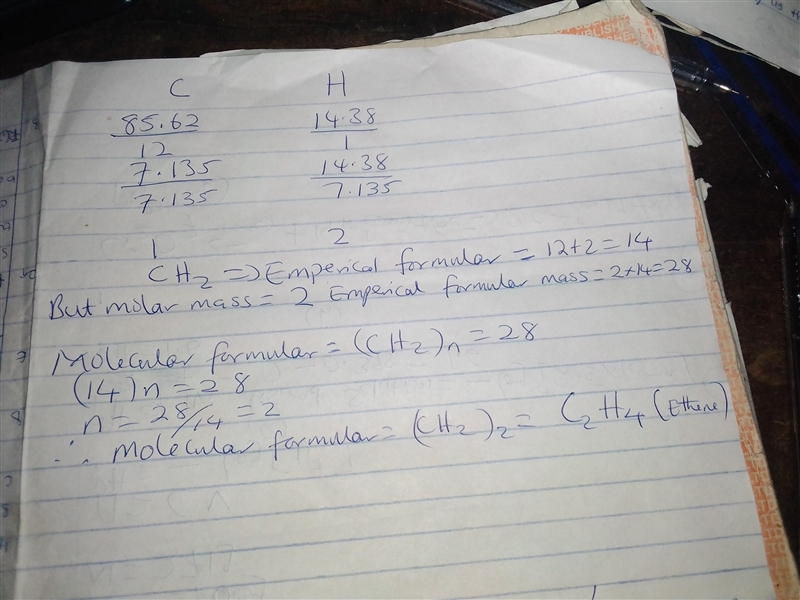 C H
85.62 14.38
12 1
7.135 14.38
7.135 7.135
1 2
CH2 => Emperical formular = 12+2=14
But molar mass = 2 Emperical formular mass = 2×14=28
Molecular formular = (CH2)n = 28
(14)n = 28
n = 28/14 = 2
∴ molecular formular = (CH2)2 = C2H4 (Ethene)